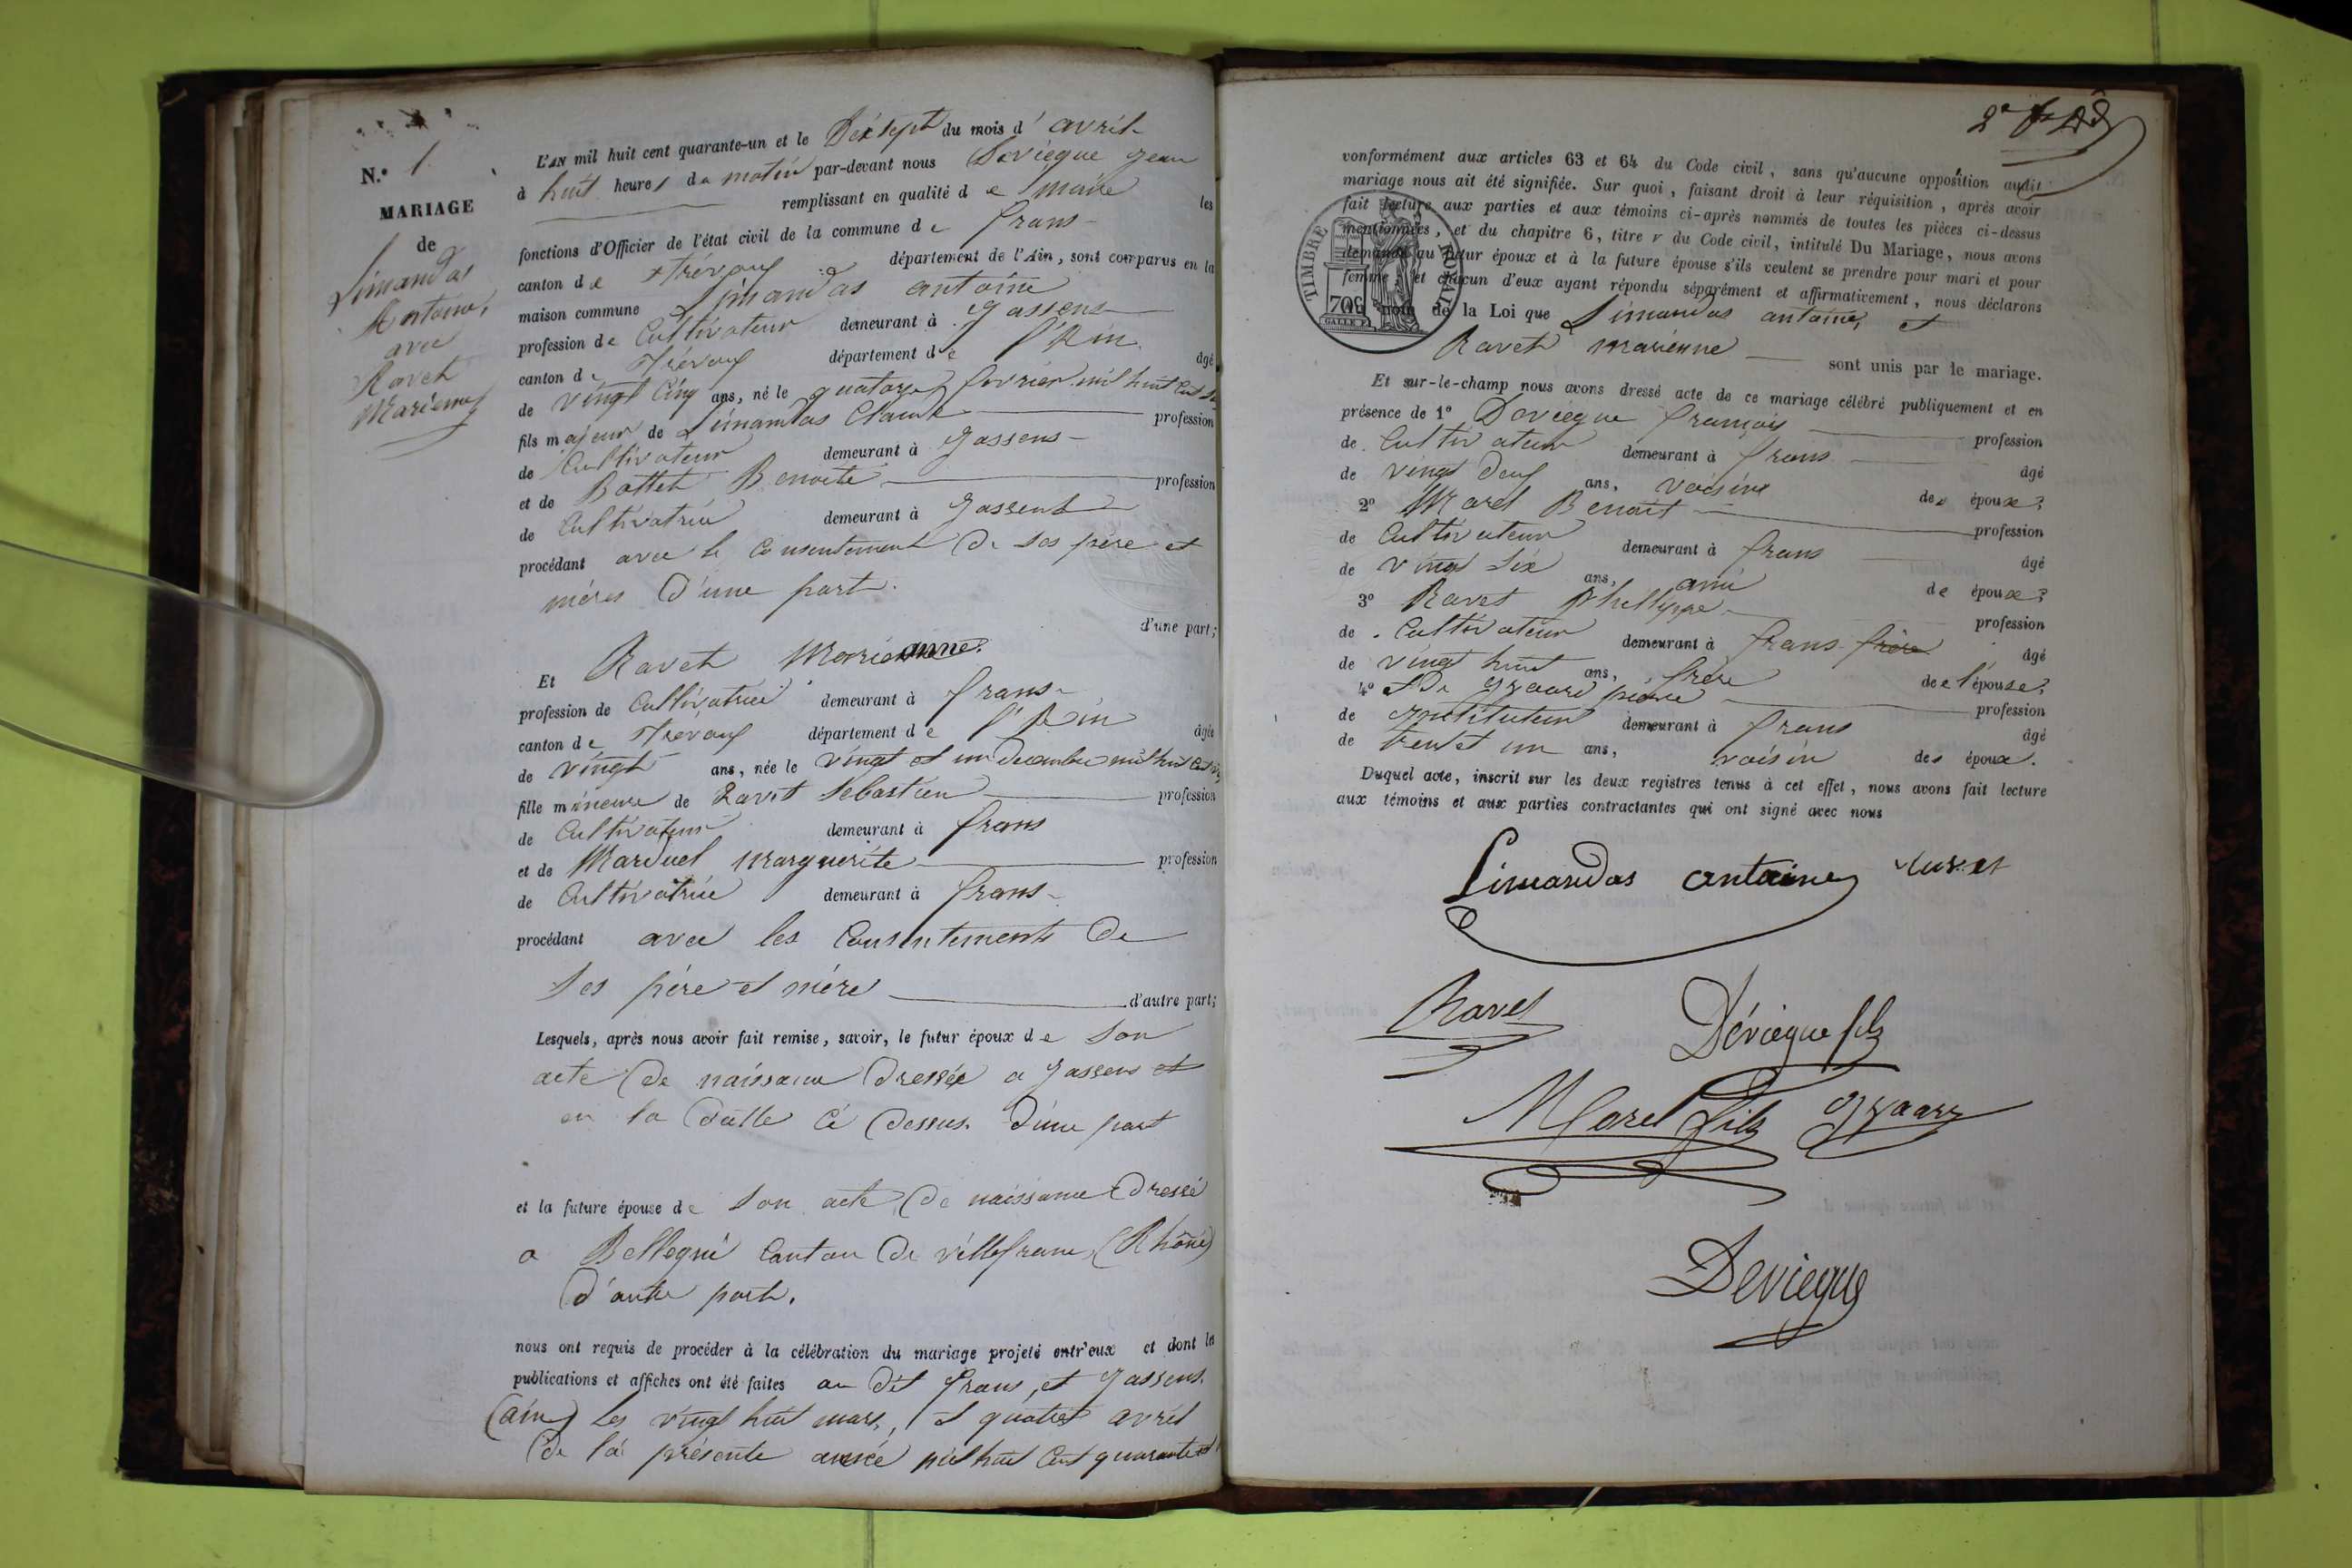 N.º 1
MARIAGE
de
Limandas
Antoine,
avec
Ravet
Marienne
L'AN mil huit cent quarante-un et le Dix sept du mois d' avril
à huit heures du matin par-devant nous Devieque Jean
remplissant en qualité de maire les
fonctions d'Officier de l'état civil de la commune de frans
canton de Trévoux département de l'Ain, sont comparus en la
maison commune Limandas antoine
profession de Cultivateur demeurant à Jassens
canton de Trévoux département de l'Ain âgé
de vingt cinq ans, né le quatorze fevrier mil huit cent
fils majeur de Limandas Claude profession
de Cultivateur demeurant à Jassens
et de Bottet Benoite profession
de Cultivatrice demeurant à Jassens
procédant avec le Consentement de ses père et
mères d'une part.
d'une part;
Et Ravet Marieanne
profession de Cultivatrice demeurant à frans
canton de Trévoux département de l'Ain âgée
de vingt ans, née le vingt et un decembre mil huit cent
fille mineure de Ravet Sebastien profession
de Cultivateur demeurant à frans
et de Marduel Marguerite profession
de Cultivatrice demeurant à frans
procédant avec les Consentements de
ses père et mère d'autre part;
Lesquels, après nous avoir fait remise, savoir, le futur époux de son
acte de naissance dressée a Jassens et
en la datte ci dessus. d'une part
et la future épouse de son acte de naissance dressé
a Bellegni Canton de villefranc (Rhône)
d'autre part.
nous ont requis de procéder à la célébration du mariage projeté entr'eux et dont les
publications et affiches ont été faites au dit frans, et Jassens
(ain) les vingt huit mars, et quatre avril
de la présente année mil huit Cent quarante et
2e
vonformément aux articles 63 et 64 du Code civil, sans qu'aucune opposition audit
mariage nous ait été signifiée. Sur quoi, faisant droit à leur réquisition, après avoir
fait lecture aux parties et aux témoins ci-après nommés de toutes les pièces ci-dessus
mentionnées, et du chapitre 6, titre V du Code civil, intitulé Du Mariage, nous avons
demandé au futur époux et à la future épouse s'ils veulent se prendre pour mari et pour
femme; et chacun d'eux ayant répondu séparément et affirmativement, nous déclarons
au nom de la Loi que Limandas antoine, et
TIMBRE ROYAL
70c
GALLE F.
Ravet marienne sont unis par le mariage.
Et sur-le-champ nous avons dressé acte de ce mariage célébré publiquement et en
présence de 1º Devieque françois profession
de Cultivateur demeurant à frans âgé
de vingt deux ans, voisin des époux
2º Morel Benoit profession
de Cultivateur demeurant à frans âgé
de vingt six ans, ami de époux
3º Ravet Phelippe profession
de Cultivateur demeurant à frans frère âgé
de vingt huit ans, frère de l'épouse
4º De Gyaare pierre profession
de instituteur demeurant à frans âgé
de trent et un ans, voisin des époux.
Duquel acte, inscrit sur les deux registres tenus à cet effet, nous avons fait lecture
aux témoins et aux parties contractantes qui ont signé avec nous
Limandas antoine
Ravet Dévieque fils
Morel fils
Devieque